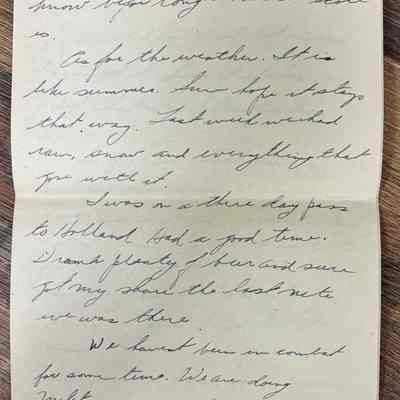 know before long
is.
As for the weather. It is
like summer. Sure hope it stays
that way. Last week we had
rain, snow and everything that
goes with it.
I was on a three day pass
to Holland. Had a good time.
Drank plenty of beer and sure
got my share the last nite
we was there.
We havent been in combat
for some time. We are doing